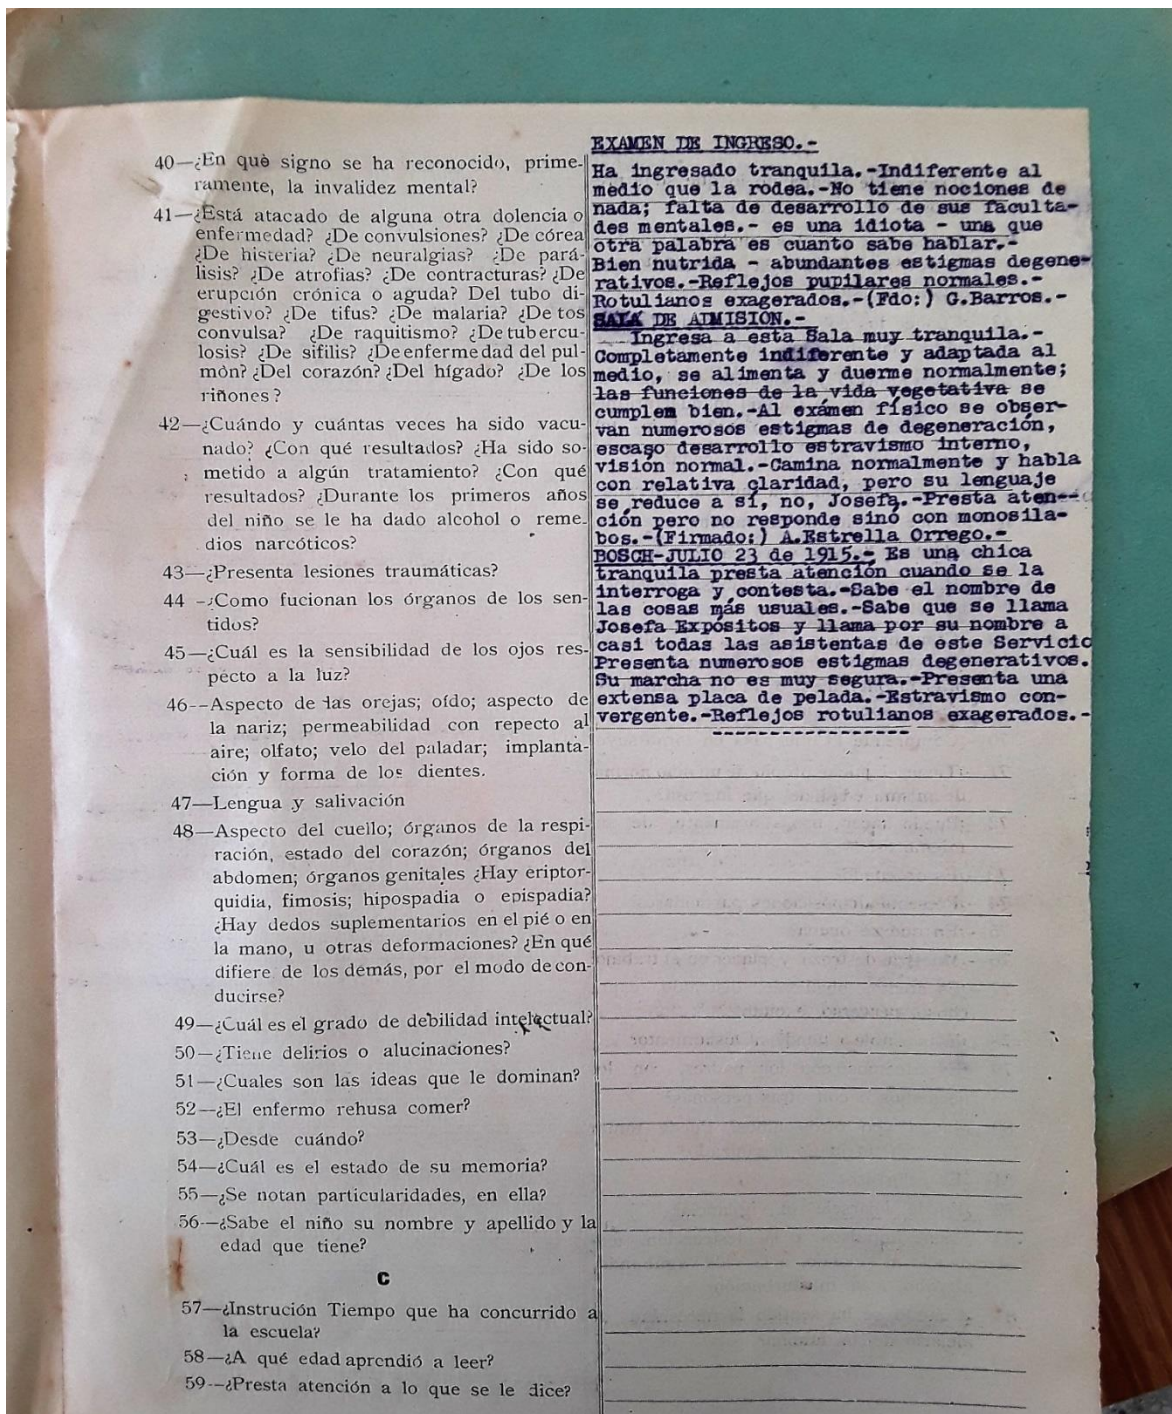 40—¿En qué signo se ha reconocido, prime-
ramente, la invalidez mental?
41—¿Está atacado de alguna otra dolencia o
enfermedad? ¿De convulsiones? ¿De córea
¿De histeria? ¿De neuralgias? ¿De pará-
lisis? ¿De atrofias? ¿De contracturas? ¿De
erupción crónica o aguda? Del tubo di-
gestivo? ¿De tifus? ¿De malaria? ¿De tos
convulsa? ¿De raquitismo? ¿De tubercu-
losis? ¿De sifilis? ¿De enfermedad del pul-
mòn? ¿Del corazón? ¿Del hígado? ¿De los
riñones?
42—¿Cuándo y cuántas veces ha sido vacu-
nado? ¿Con qué resultados? ¿Ha sido so-
metido a algún tratamiento? ¿Con qué
resultados? ¿Durante los primeros años
del niño se le ha dado alcohol o reme-
dios narcóticos?
43—¿Presenta lesiones traumáticas?
44 -¿Como fucionan los órganos de los sen-
tidos?
45—¿Cuál es la sensibilidad de los ojos res-
pecto a la luz?
46--Aspecto de las orejas; oído; aspecto de
la nariz; permeabilidad con repecto al
aire; olfato; velo del paladar; implanta-
ción y forma de los dientes.
47—Lengua y salivación
48—Aspecto del cuello; órganos de la respi-
ración, estado del corazón; órganos del
abdomen; órganos genitales ¿Hay eriptor-
quidia, fimosis; hipospadia o epispadia?
¿Hay dedos suplementarios en el pié o en
la mano, u otras deformaciones? ¿En qué
difiere de los demás, por el modo de con-
ducirse?
49—¿Cuál es el grado de debilidad intelectual?
50—¿Tiene delirios o alucinaciones?
51—¿Cuales son las ideas que le dominan?
52—¿El enfermo rehusa comer?
53—¿Desde cuándo?
54—¿Cuál es el estado de su memoria?
55—¿Se notan particularidades, en ella?
56—¿Sabe el niño su nombre y apellido y la
edad que tiene?
C
57—¿Instrución Tiempo que ha concurrido a
la escuela?
58—¿A qué edad aprendió a leer?
59--¿Presta atención a lo que se le dice?
EXAMEN DE INGRESO.-
Ha ingresado tranquila.-Indiferente al
medio que la rodea.-No tiene nociones de
nada; falta de desarrollo de sus faculta-
des mentales.- es una idiota - una que
otra palabra es cuanto sabe hablar.-
Bien nutrida - abundantes estigmas degene-
rativos.-Reflejos pupilares normales.-
Rotulianos exagerados.-(Fdo:) G.Barros.-
SALA DE ADMISION.-
Ingresa a esta Sala muy tranquila.-
Completamente indiferente y adaptada al
medio, se alimenta y duerme normalmente;
las funciones de la vida vegetativa se
cumplem bien.-Al exámen físico se obser-
van numerosos estigmas de degeneración,
escaso desarrollo estravismo interno,
visión normal.-Camina normalmente y habla
con relativa claridad, pero su lenguaje
se reduce a sí, no, Josefa.-Presta aten--
ción pero no responde sinó con monosila-
bos.-(Firmado:) A.Estrella Orrego.-
BOSCH-JULIO 23 de 1915.- Es una chica
tranquila presta atención cuando se la
interroga y contesta.-Sabe el nombre de
las cosas más usuales.-Sabe que se llama
Josefa Expósitos y llama por su nombre a
casi todas las asistentas de este Servicio
Presenta numerosos estigmas degenerativos.
Su marcha no es muy segura.-Presenta una
extensa placa de pelada.-Estravismo con-
vergente.-Reflejos rotulianos exagerados.-